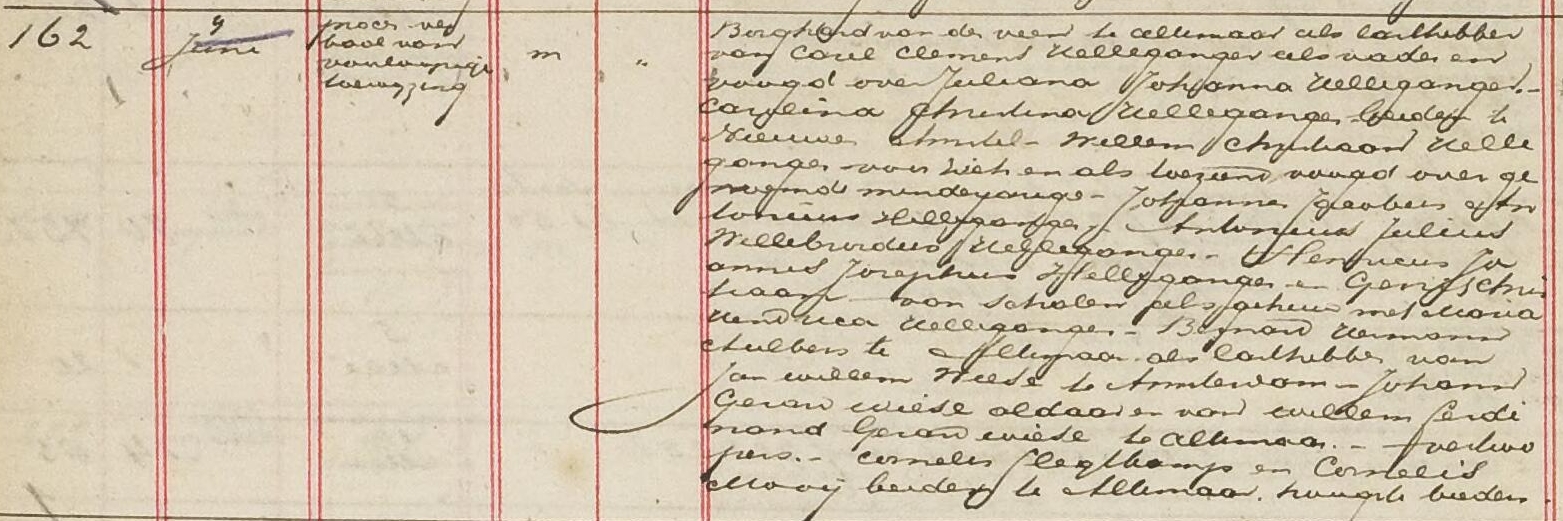 162
9
Juni
proces ver
baal van
voorloopige
toewyzing
m
"
Borghard van der veen te alkmaar als lasthebber
van Carel Clemens Helleganger als vader en
voogd over Juliana Johanna Helleganger.-
Carolina Christina Helleganger beiden te
Nieuwer Amstel - Willem Christiaan Helle
ganger voor zich en als toeziend voogd over ge
noemde minderjarige - Johannes Jacobus An
tonius Helleganger - Antonius Julius
Willebrordus Helleganger - Henricus Jo
annes Josephus Helleganger en Gerrit Chris
tiaan van Schalen als gehuwd met Maria
Hendrica Helleganger - Bernard Hermann
te Alkmaar als lasthebber van
Jan willem Wiese te Amsterdam - Johann
Gerard wiese aldaar en van willem Ferdi
nand Gerard wiese te alkmaar. - verkoo
pers. - Cornelis Slegtkamp en Cornelis
Mooij beiden te Alkmaar. hoogste bieders.